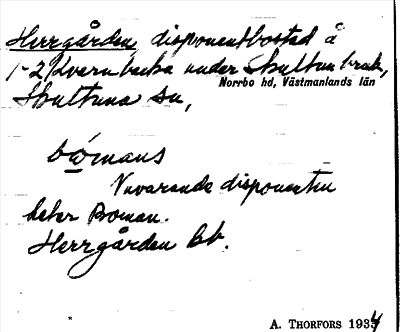 Herrgården, disponentbostad å
1-2 Kvarnbacka under Skultuna bruk,
Norrbo hd, Västmanlands län
Skultuna sn,
bomans
Nuvarande disponenten
heter Boman.
Herrgården bb.
A. THORFORS 1934